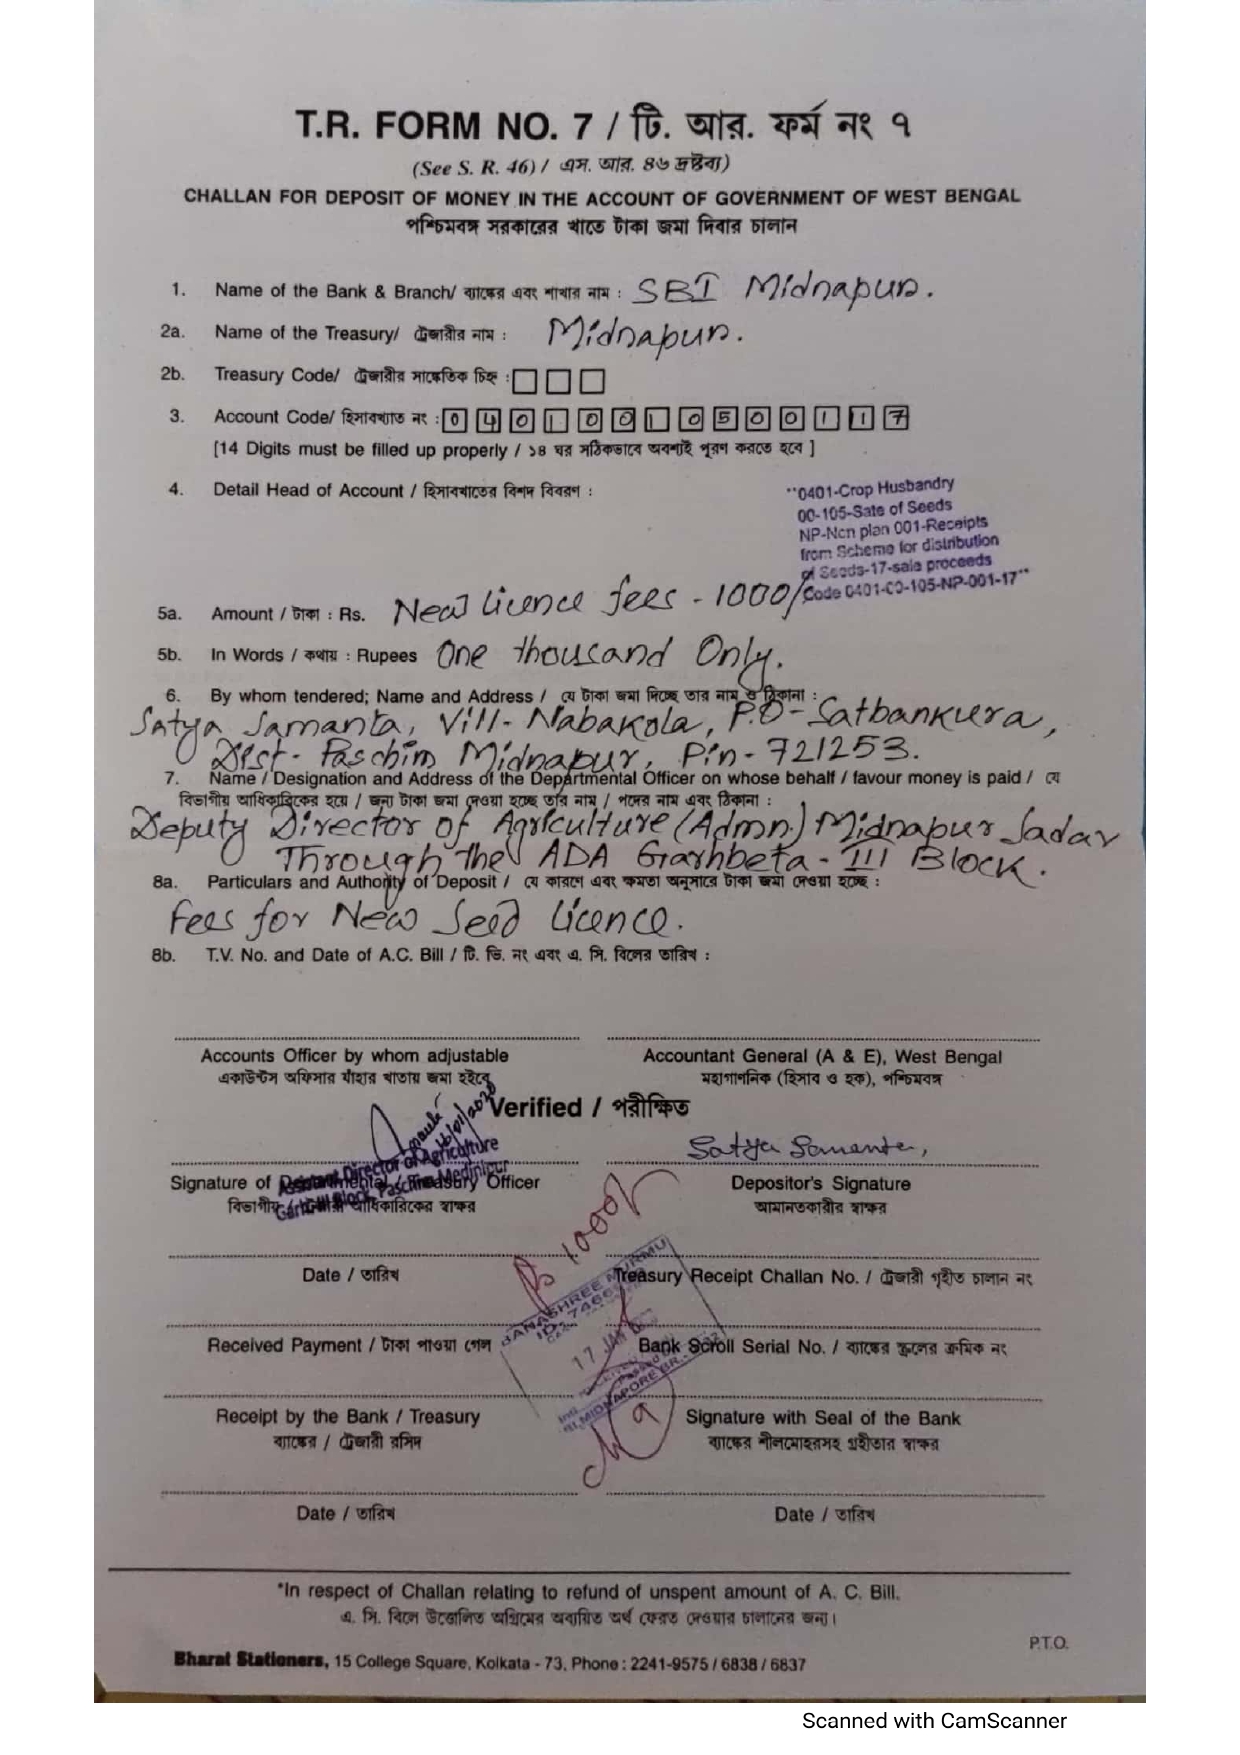 T.R. FORM NO. 7 / টি. আর. ফর্ম নং ৭
(See S. R. 46) / এস. আর. ৪৬ দ্রষ্টব্য)
CHALLAN FOR DEPOSIT OF MONEY IN THE ACCOUNT OF GOVERNMENT OF WEST BENGAL
পশ্চিমবঙ্গ সরকারের খাতে টাকা জমা দিবার চালান
1. Name of the Bank & Branch/ ব্যাঙ্কের এবং শাখার নাম : SBI Midnapur.
2a. Name of the Treasury/ ট্রেজারীর নাম : Midnapur.
2b. Treasury Code/ ট্রেজারীর সাঙ্কেতিক চিহ্ন :
3. Account Code/ হিসাবখাত নং : 0 4 0 1 0 0 1 0 5 0 0 1 1 7
[14 Digits must be filled up properly / ১৪ ঘর সঠিকভাবে অবশ্যই পূরণ করতে হবে ]
4. Detail Head of Account / হিসাবখাতের বিশদ বিবরণ :
"0401-Crop Husbandry
00-105-Sate of Seeds
NP-Ncn plan 001-Receipts
from Scheme for distribution
of Seeds-17-sale proceeds
Code 0401-C0-105-NP-001-17"
5a. Amount / টাকা : Rs. New licence fees - 1000/
5b. In Words / কথায় : Rupees One thousand Only.
6. By whom tendered; Name and Address / যে টাকা জমা দিচ্ছে তার নাম ও ঠিকানা :
Satya Samanta, Vill- Nabakola, P.O- Satbankura,
Dist- Paschim Midnapur, Pin- 721253.
7. Name / Designation and Address of the Departmental Officer on whose behalf / favour money is paid / যে
বিভাগীয় আধিকারিকের হয়ে / জন্য টাকা জমা দেওয়া হচ্ছে তার নাম / পদের নাম এবং ঠিকানা :
Deputy Director of Agriculture (Admn.) Midnapur Sadar
Through the ADA Garhbeta - III Block.
8a. Particulars and Authority of Deposit / যে কারণে এবং ক্ষমতা অনুসারে টাকা জমা দেওয়া হচ্ছে :
Fees for New Seed Licence.
8b. T.V. No. and Date of A.C. Bill / টি. ভি. নং এবং এ. সি. বিলের তারিখ :
Accounts Officer by whom adjustable
একাউন্টস অফিসার যাঁহার খাতায় জমা হইবে
Accountant General (A & E), West Bengal
মহাগাণনিক (হিসাব ও হক), পশ্চিমবঙ্গ
Verified / পরীক্ষিত
Satya Samanta,
Director of Agriculture
Signature of Departmental / Treasury Officer
বিভাগীয় আধিকারিকের স্বাক্ষর
Depositor's Signature
আমানতকারীর স্বাক্ষর
1000/
Date / তারিখ
Treasury Receipt Challan No. / ট্রেজারী গৃহীত চালান নং
JANASHREE MURMU
17 JAN
MIDNAPORE BR.
Received Payment / টাকা পাওয়া গেল
Bank Scroll Serial No. / ব্যাঙ্কের স্ক্রলের ক্রমিক নং
Receipt by the Bank / Treasury
ব্যাঙ্কের / ট্রেজারী রসিদ
Signature with Seal of the Bank
ব্যাঙ্কের শীলমোহরসহ গ্রহীতার স্বাক্ষর
Date / তারিখ
Date / তারিখ
*In respect of Challan relating to refund of unspent amount of A. C. Bill.
এ. সি. বিলে উত্তোলিত অগ্রিমের অব্যয়িত অর্থ ফেরত দেওয়ার চালানের জন্য।
P.T.O.
Bharat Stationers, 15 College Square, Kolkata - 73, Phone : 2241-9575 / 6838 / 6837
Scanned with CamScanner